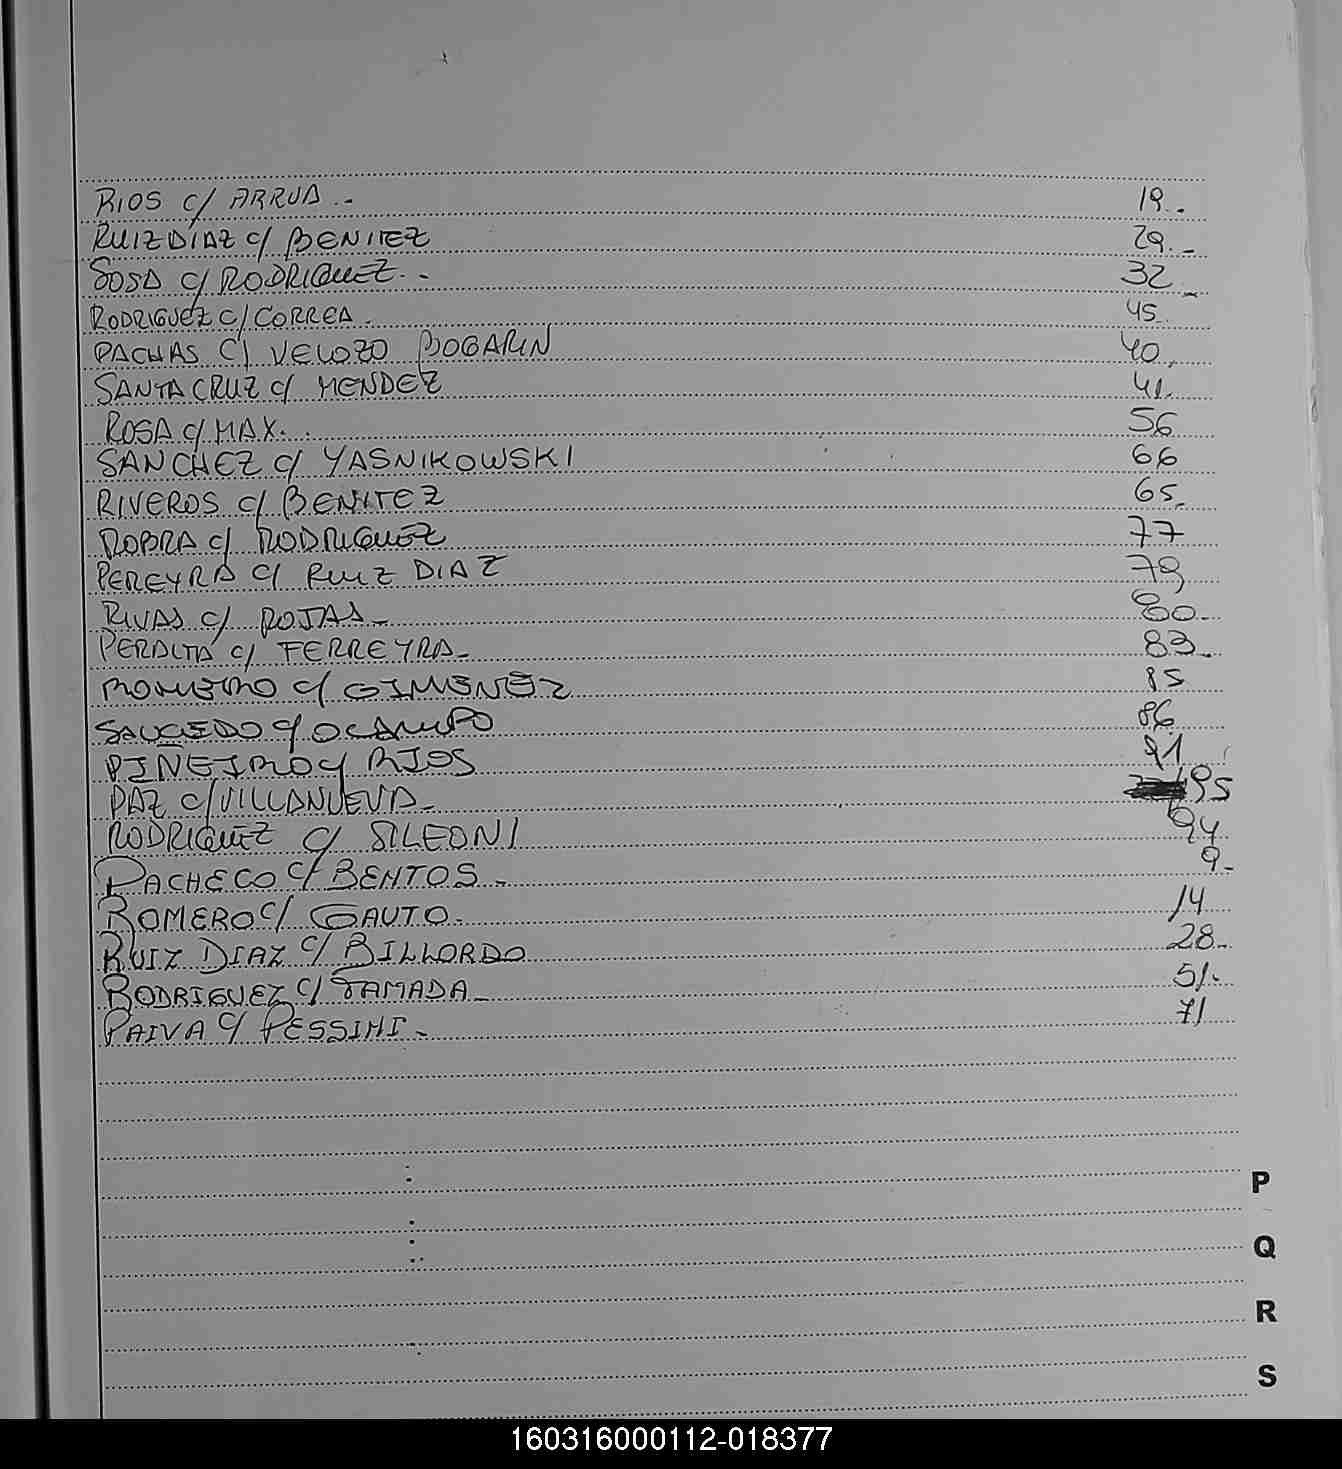 RIOS c/ ARRUA.- 19.-
RUIZ DÍAZ c/ BENITEZ 29.-
SOSA c/ RODRIGUEZ.- 32.-
RODRIGUEZ C/ CORREA. 45.
PACHAS C/ VELOZO BOGARIN 40.
SANTA CRUZ c/ MENDEZ 41.
ROSA c/ MAX. 56
SANCHEZ c/ YASNIKOWSKI 66
RIVEROS c/ BENITEZ 65.
c/ RODRIGUEZ 77
PEREYRA c/ RUIZ DIAZ 79
RIVAS c/ ROJAS.- 80.-
PERALTA c/ FERREYRA.- 83.-
ROMERO c/ GIMENEZ 85
SAUCEDO c/ OCAMPO 86
PIÑEIRO c/ RIOS 91
PAZ c/ VILLANUEVA.- 95
RODRIGUEZ c/ SILEONI 94
PACHECO c/ BENTOS.- 9.-
ROMERO c/ GAUTO. 14
RUIZ DIAZ c/ BILLORDO 28.-
RODRIGUEZ c/ TAMADA.- 51.-
PAIVA c/ PESSINI.- 71
P
Q
R
S
160316000112-018377